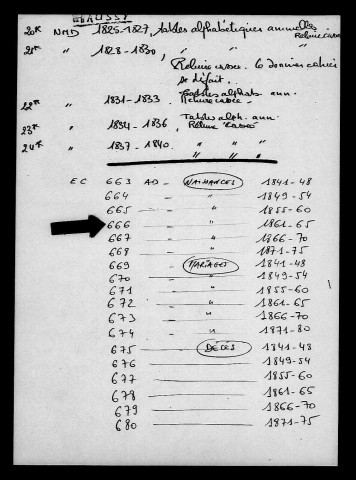 20R NMD 1825-1827, tables alphabétiques annuelles
Reliure cassée
21R " 1828-1830, " " "
Reliure cassée. Le dernier cahier
se défait..
22R " 1831-1833 tables alphab. ann.
Reliure cassée
23R " 1834-1836, Tables alph. ann.
Reliure cassée
24R " 1837-1840. " " "
" "
EC 663 AD - NAISSANCES 1841-48
664 " 1849-54
665 " 1855-60
666 " 1861-65
667 " 1866-70
668 " 1871-75
669 MARIAGES 1841-48
670 " 1849-54
671 " 1855-60
672 " 1861-65
673 " 1866-70
674 " 1871-80
675 DÉCÈS 1841-48
676 1849-54
677 1855-60
678 1861-65
679 1866-70
680 1871-75